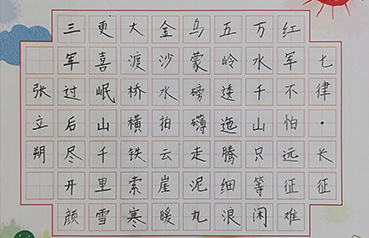 七律·长征
红军不怕远征难
万水千山只等闲
五岭逶迤腾细浪
乌蒙磅礴走泥丸
金沙水拍云崖暖
大渡桥横铁索寒
更喜岷山千里雪
三军过后尽开颜
张立朔